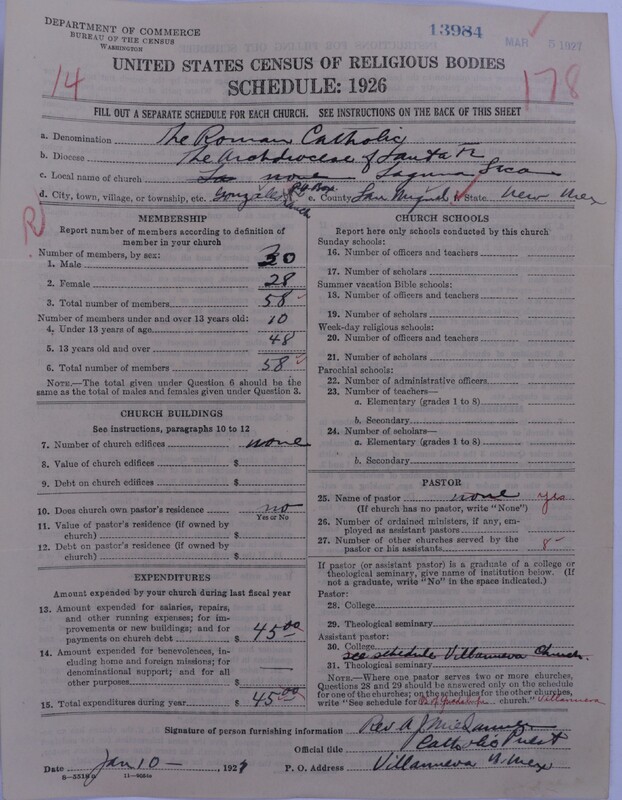 DEPARTMENT OF COMMERCE
BUREAU OF THE CENSUS
WASHINGTON
13984
MAR 5 1927
UNITED STATES CENSUS OF RELIGIOUS BODIES
14
SCHEDULE: 1926
178
FILL OUT A SEPARATE SCHEDULE FOR EACH CHURCH. SEE INSTRUCTIONS ON THE BACK OF THIS SHEET
a. Denomination The Roman Catholic
b. Diocese The Archdiocese of Santa Fe
c. Local name of church none Laguna Seca
d. City, town, village, or township, etc. Gonzales Ranch P.O. Box e. County San Miguel f. State New Mex
R
MEMBERSHIP
Report number of members according to definition of member in your church
Number of members, by sex:
1. Male 30
2. Female 28
3. Total number of members 58
Number of members under and over 13 years old:
4. Under 13 years of age 10
5. 13 years old and over 48
6. Total number of members 58
NOTE.—The total given under Question 6 should be the
same as the total of males and females given under Question 3.
CHURCH BUILDINGS
See instructions, paragraphs 10 to 12
7. Number of church edifices none
8. Value of church edifices $
9. Debt on church edifices $
10. Does church own pastor's residence no
Yes or No
11. Value of pastor's residence (if owned by
church) $
12. Debt on pastor's residence (if owned by
church) $
EXPENDITURES
Amount expended by your church during last fiscal year
13. Amount expended for salaries, repairs,
and other running expenses; for im-
provements or new buildings; and for
payments on church debt $ 45.00
14. Amount expended for benevolences, in-
cluding home and foreign missions; for
denominational support; and for all
other purposes $ —
15. Total expenditures during year $ 45.00
CHURCH SCHOOLS
Report here only schools conducted by this church
Sunday schools:
16. Number of officers and teachers
17. Number of scholars
Summer vacation Bible schools:
18. Number of officers and teachers
19. Number of scholars
Week-day religious schools:
20. Number of officers and teachers
21. Number of scholars
Parochial schools:
22. Number of administrative officers
23. Number of teachers—
a. Elementary (grades 1 to 8)
b. Secondary
24. Number of scholars—
a. Elementary (grades 1 to 8)
b. Secondary
PASTOR
25. Name of pastor none yes
(If church has no pastor, write "None")
26. Number of ordained ministers, if any, em-
ployed as assistant pastors
27. Number of other churches served by the
pastor or his assistants 8
If pastor (or assistant pastor) is a graduate of a college or
theological seminary, give name of institution below. (If
not a graduate, write "No" in the space indicated.)
Pastor:
28. College
29. Theological seminary
Assistant pastor:
30. College
see schedule Villanueva Church.
31. Theological seminary
NOTE.—Where one pastor serves two or more churches,
Questions 28 and 29 should be answered only on the schedule
for one of the churches; on the schedules for the other churches,
write "See schedule for church." Villanueva
Signature of person furnishing information Rev. A. J.
Official title Catholic Priest
Date Jan 10 —, 1927 P. O. Address Villanueva N. Mex